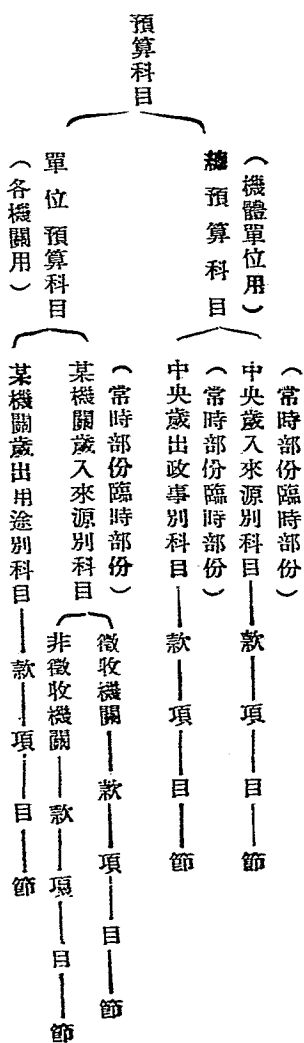 預算科目
（機體單位用）
總預算科目
（常時部份臨時部份）
中央歲入來源別科目——款——項——目——節
（常時部份臨時部份）
中央歲出政事別科目——款——項——目——節
單位預算科目
（各機關用）
（常時部份臨時部份）
某機關歲入來源別科目
徵收機關——款——項——目——節
非徵收機關——款——項——目——節
某機關歲出用途別科目——款——項——目——節